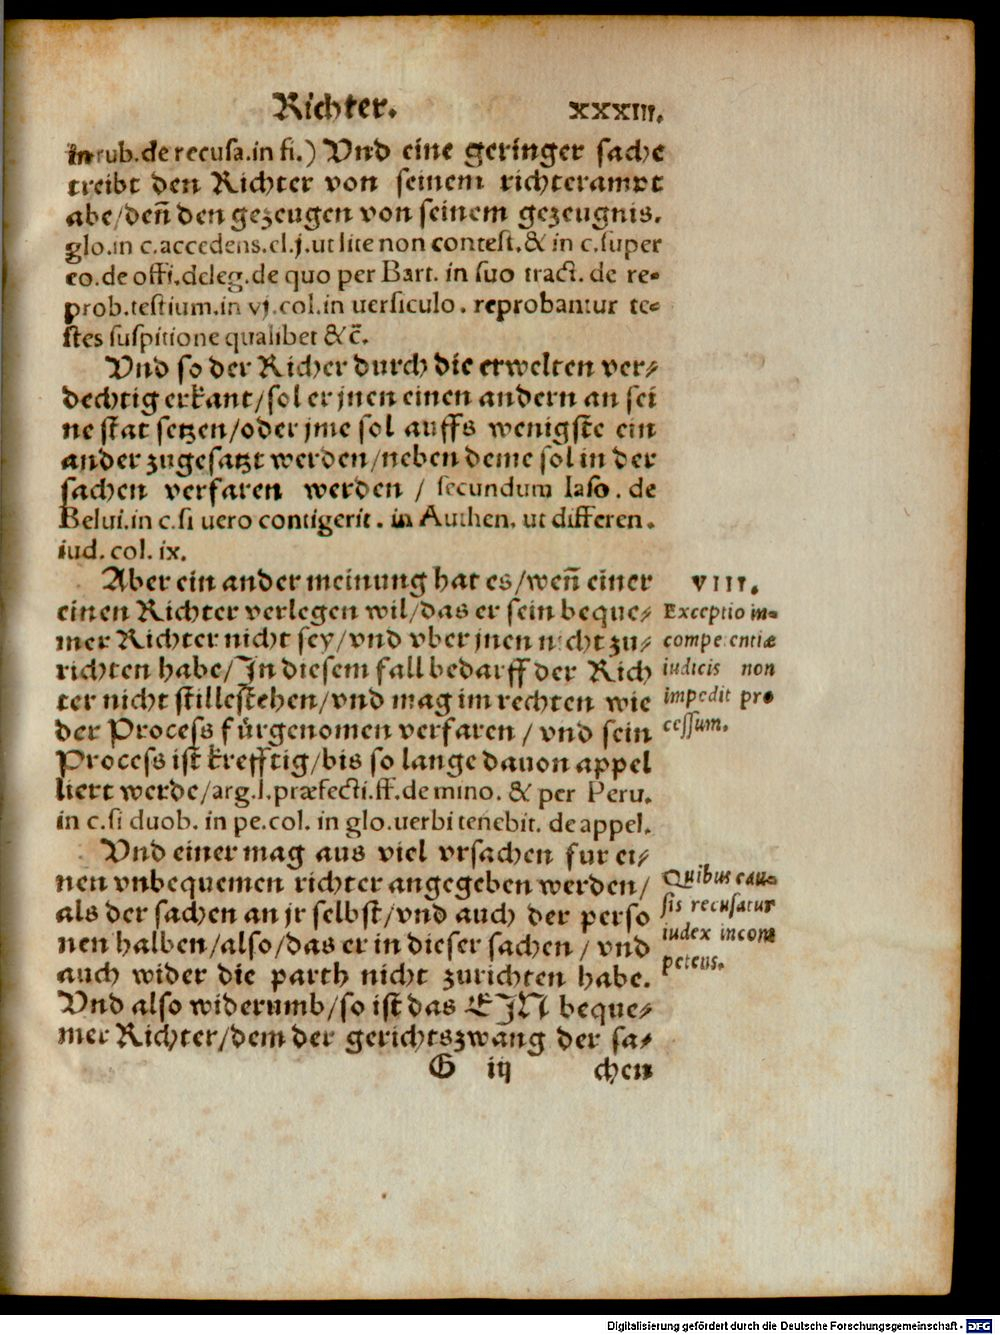 Richter. XXXIII.
in rub.de recusa.in fi.) Vnd eine geringer sache
treibt den Richter von seinem richterampt
abe/den̄ den gezeugen von seinem gezeugnis.
glo.in c.accedens.el.j.ut lite non contest.& in c.super
eo.de offi.deleg.de quo per Bart. in suo tract. de re-
prob.testium.in vj.col.in uersiculo. reprobantur te-
stes suspitione qualibet &c̄.
Vnd so der Richer durch die erwelten ver/
dechtig erkant/sol er jnen einen andern an sei
ne stat setzen/oder jme sol auffs wenigste ein
ander zugesatzt werden/neben deme sol in der
sachen verfaren werden / secundum Iaso. de
Belui.in c.si uero contigerit. in Authen. ut differen.
iud. col. ix.
Aber ein ander meinung hat es/wen̄ einer
einen Richter verlegen wil/das er sein beque/
mer Richter nicht sey/vnd vber jnen nicht zu/
richten habe/In diesem fall bedarff der Rich
ter nicht stillestehen/vnd mag im rechten wie
der Process fürgenomen verfaren / vnd sein
Process ist krefftig/bis so lange dauon appel
liert werde/arg.l.præfecti.ff.de mino. & per Peru.
in c.si duob. in pe.col. in glo.uerbi tenebit. de appel.
VIII.
Exceptio in-
competentiæ
iudicis non
impedit pro
cessum.
Vnd einer mag aus viel vrsachen fur ei/
nen vnbequemen richter angegeben werden/
als der sachen an jr selbst/vnd auch der perso
nen halben/also/das er in dieser sachen / vnd
auch wider die parth nicht zurichten habe.
Vnd also widerumb/so ist das EIN beque/
mer Richter/dem der gerichtszwang der sa/
Quibus cau-
sis recusatur
iudex incom
petens.
G iij chen
Digitalisierung gefördert durch die Deutsche Forschungsgemeinschaft - DFG